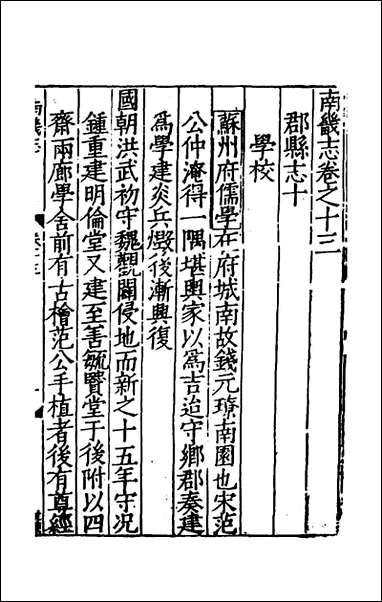 南畿志卷之十三
郡縣志十
學校
蘇州府儒學在府城南故錢元璙南園也宋范
公仲淹得一隅堪輿家以爲吉迨守鄉郡奏建
爲學建炎兵燬後漸興復
國朝洪武初守魏觀闢侵地而新之十五年守况
鍾重建明倫堂又建至善毓賢堂于後附以四
齋兩廊學舍前有古檜范公手植者後有尊經
南畿志